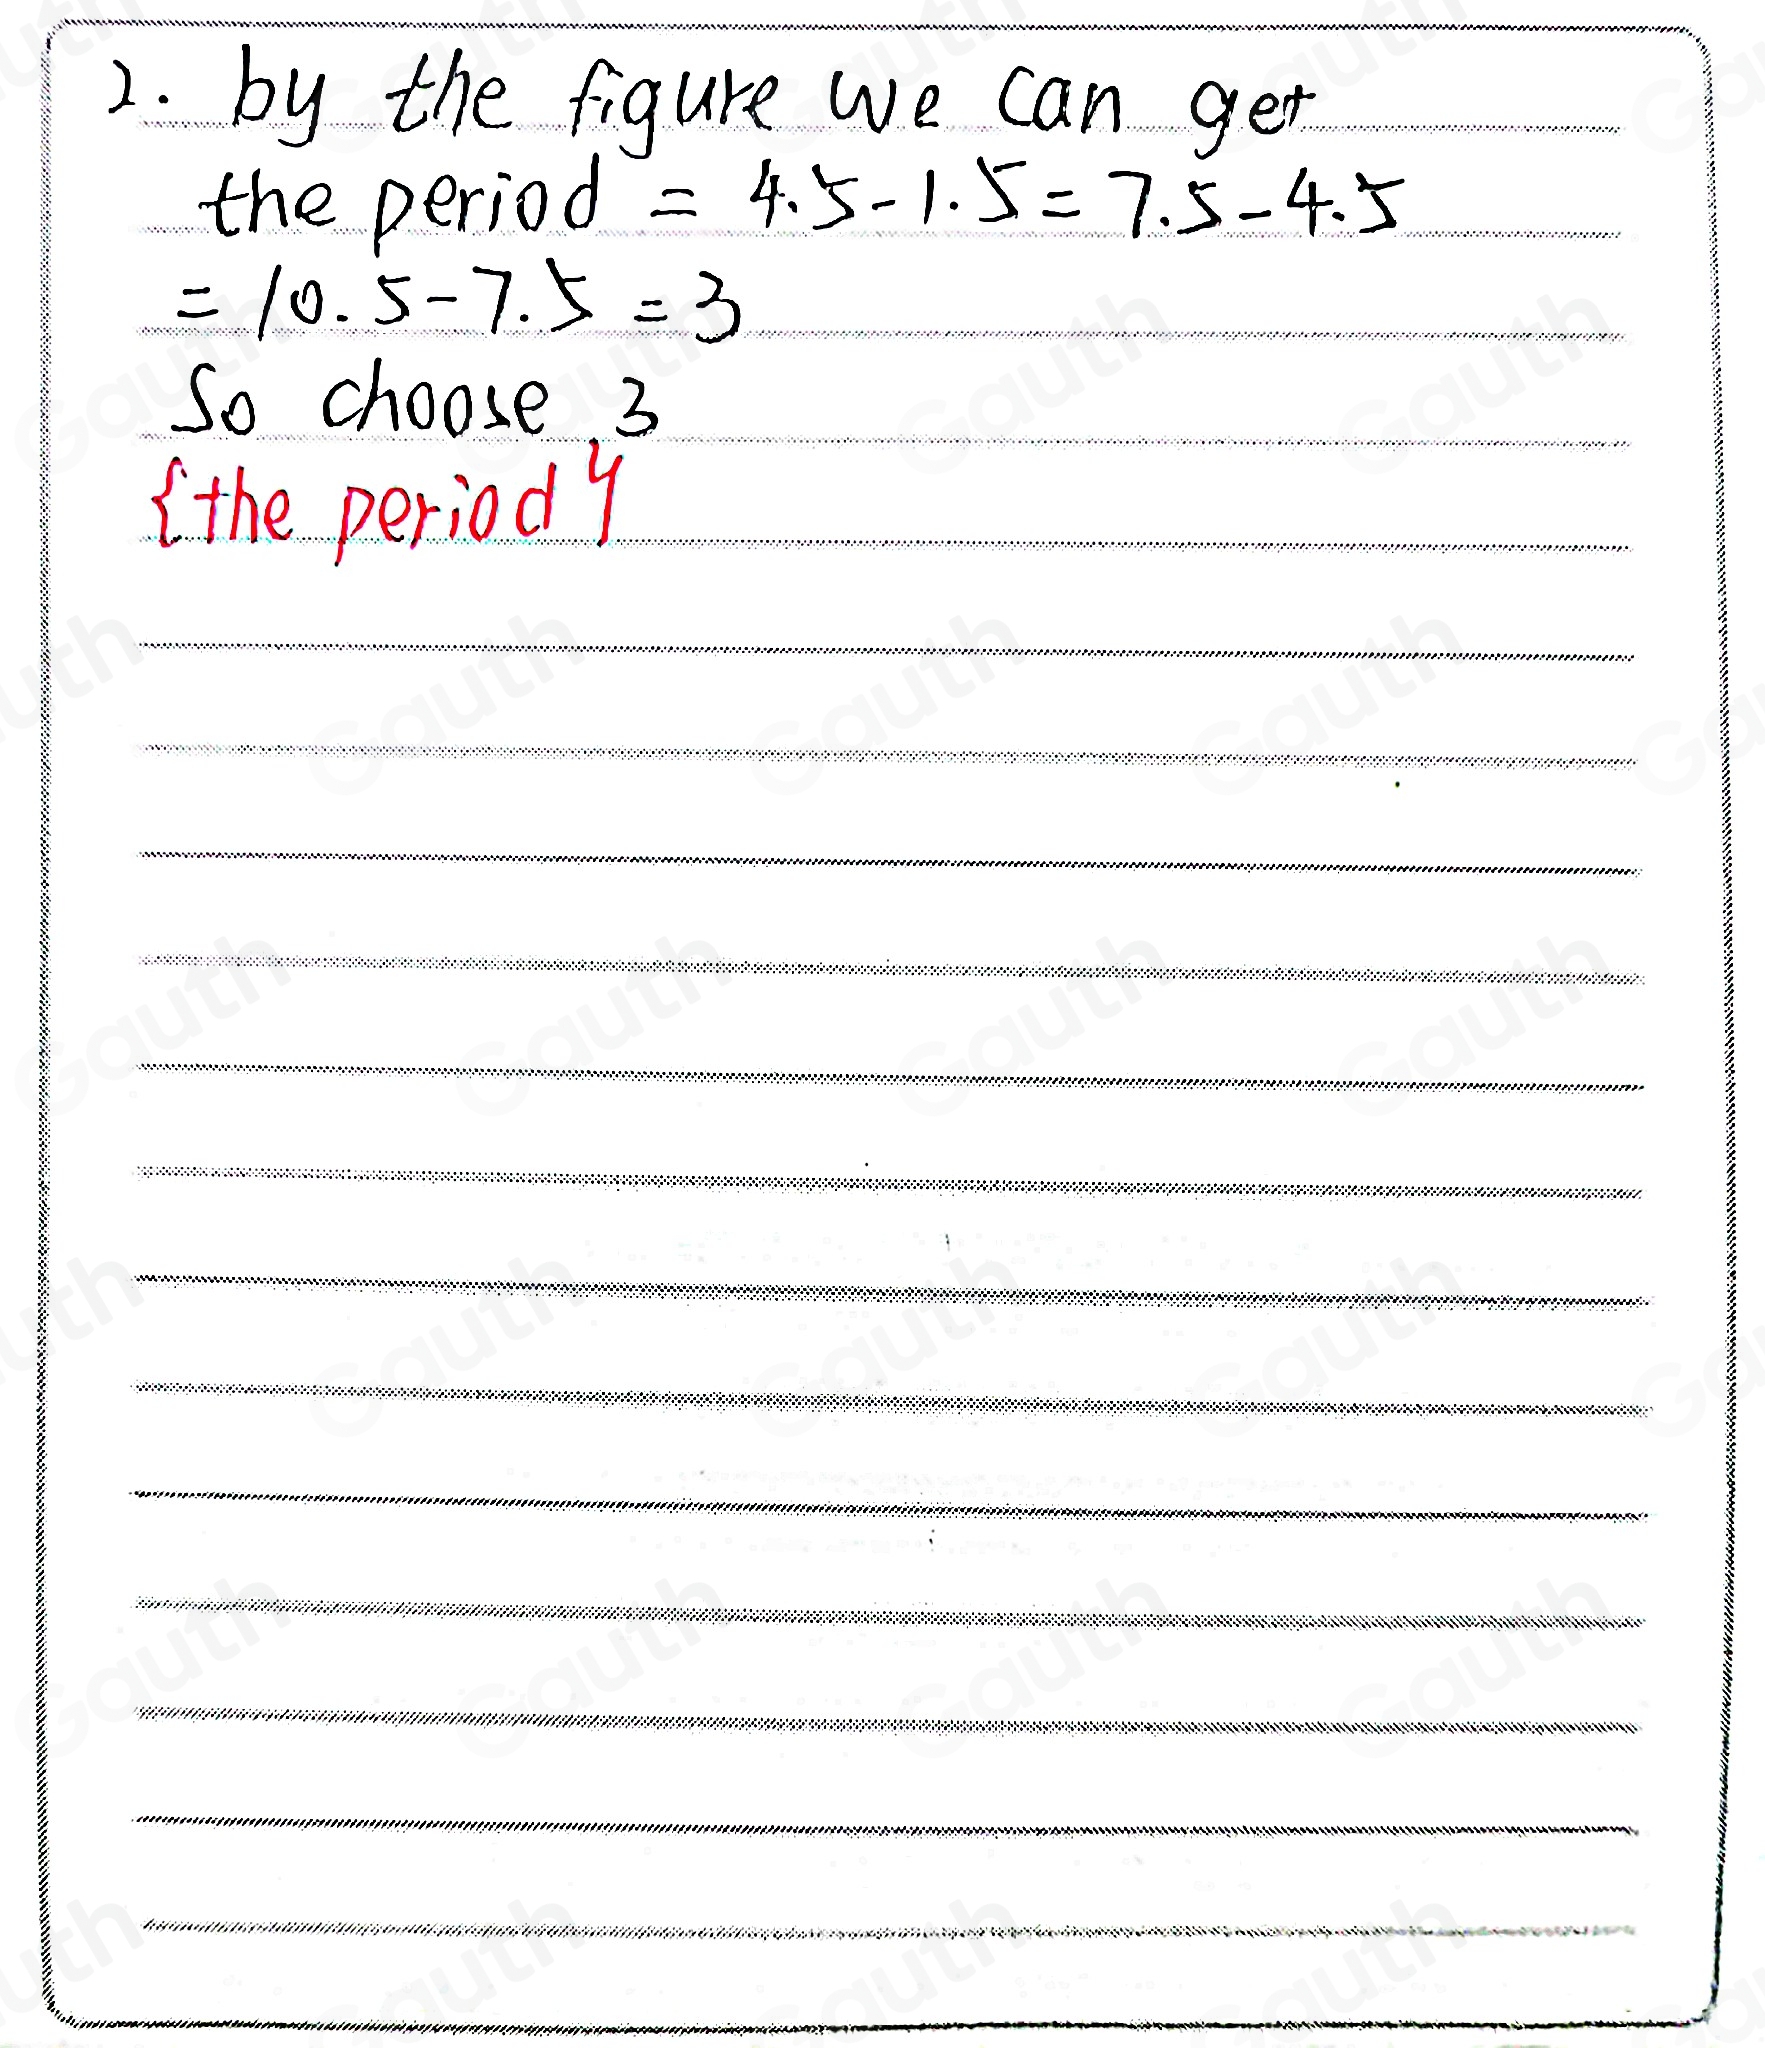 2. by the figure we can get
the period = 4.5-1.5=7.5-4.5
=10.5-7.5=3
So choose 3
{the period}